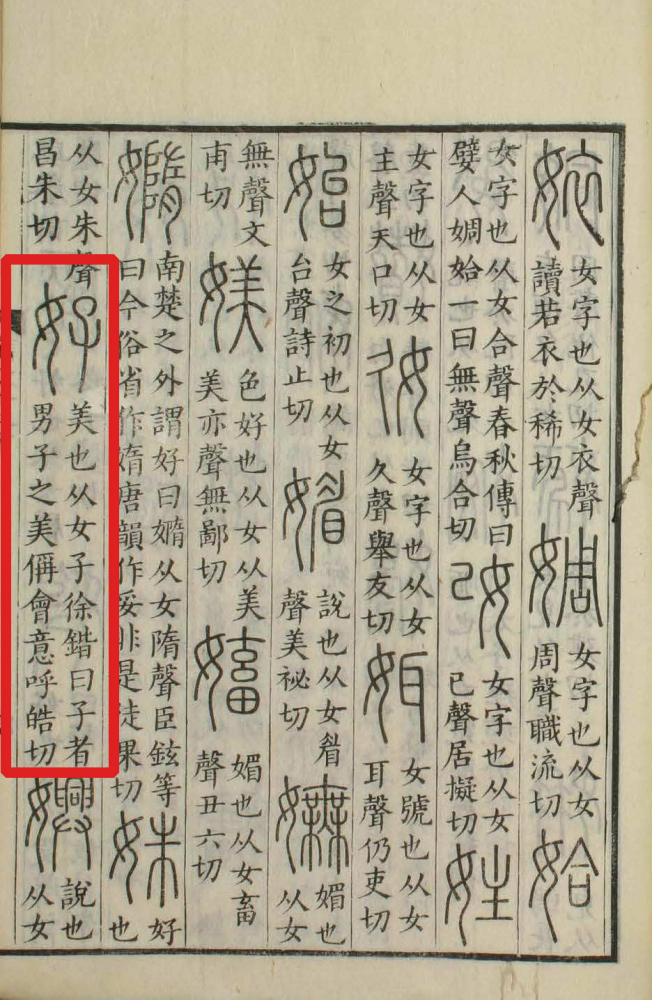 㛄
女字也从女衣聲
讀若衣於稀切
婤
女字也从女
周聲職流切
姶
女字也从女合聲春秋傳曰
嬖人婤姶一曰無聲烏合切
妀
女字也从女
己聲居擬切
妵
女字也从女
主聲天口切
女字也从女
久聲舉友切
㛅
女號也从女
耳聲仍吏切
始
女之初也从女
台聲詩止切
媚
說也从女睂
聲美祕切
嫵
媚也
从女
無聲文
甫切
媄
色好也从女从美
美亦聲無鄙切
㜅
媚也从女畜
聲丑六切
嫷
南楚之外謂好曰嫷从女隋聲臣鉉等
曰今俗省作媠唐韻作妥非是徒果切
姝
好
也
从女朱聲
昌朱切
好
美也从女子徐鍇曰子者
男子之美偁會意呼皓切
嬹
說也
从女